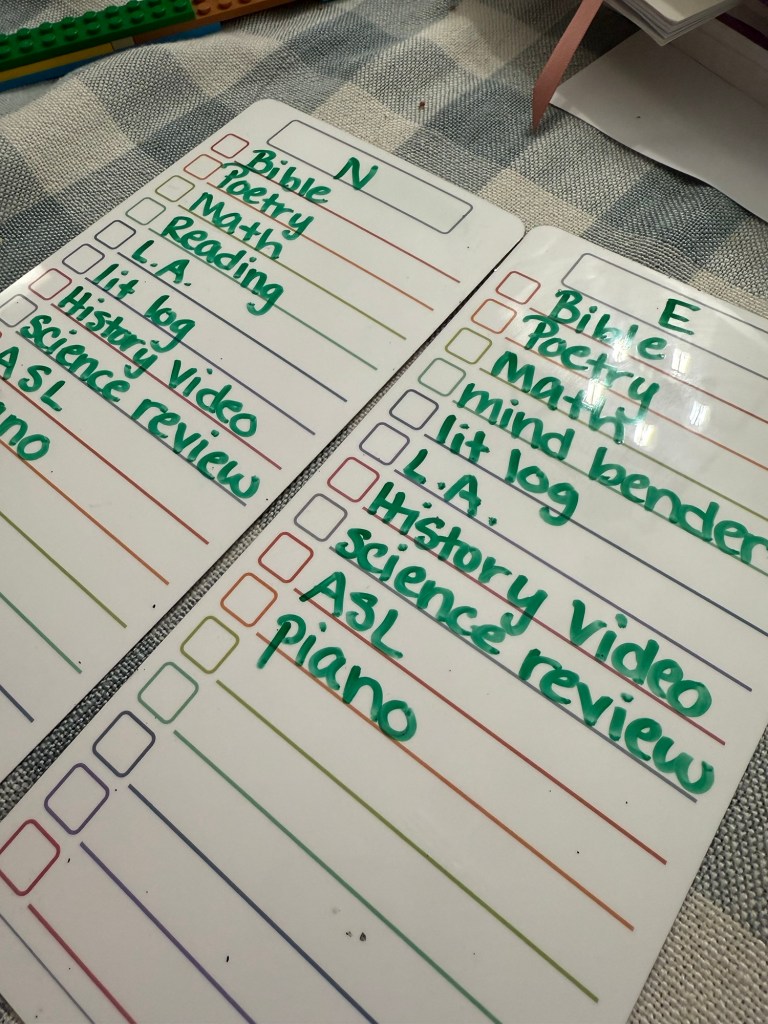 N
Bible
Poetry
Math
Reading
L.A.
lit log
History video
science review
ASL
E
Bible
Poetry
Math
mind bender
lit log
L.A.
History video
science review
ASL
piano